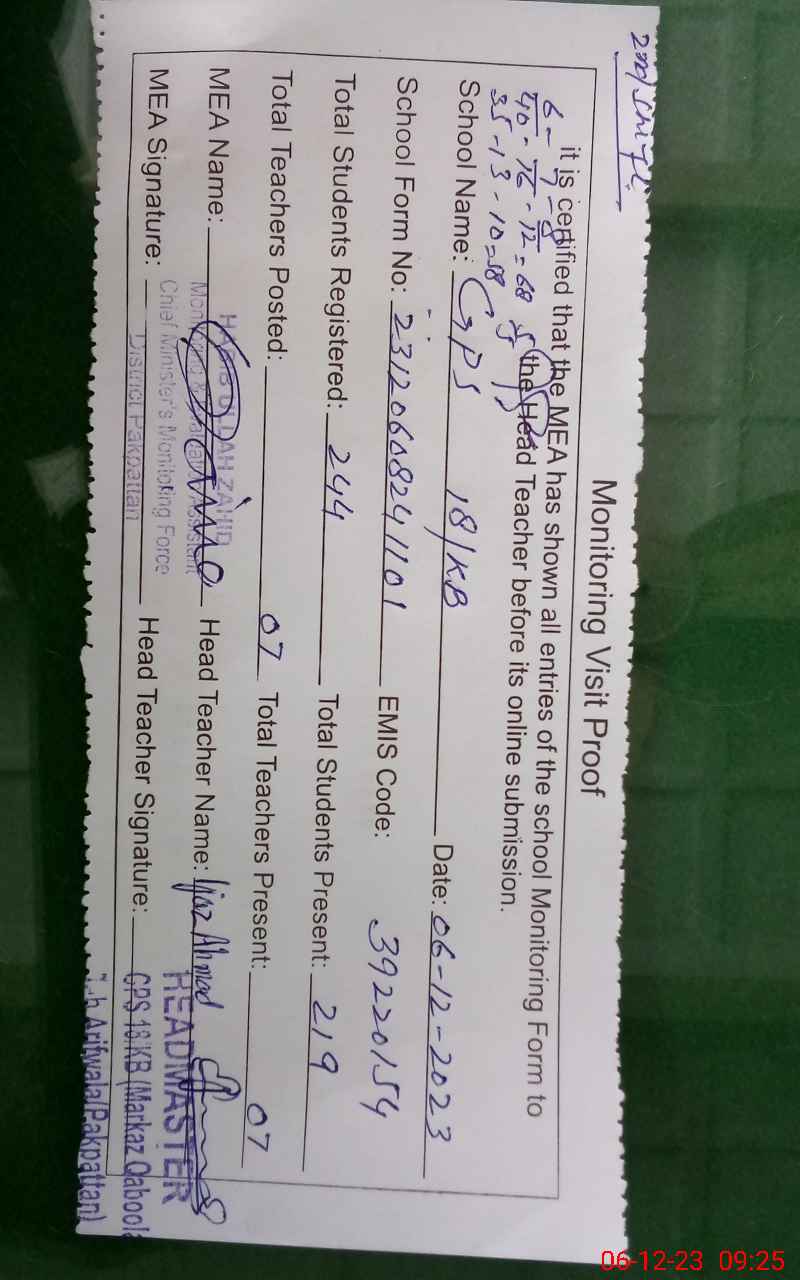 2nd Shift
Monitoring Visit Proof
it is certified that the MEA has shown all entries of the school Monitoring Form to
the Head Teacher before its online submission.
6 - 7 - 8
40 - 16 - 12 = 68
35 - 13 - 10 = 58
School Name: GPS 18/KB Date: 06-12-2023
School Form No: 23120608241101 EMIS Code: 39220154
Total Students Registered: 244 Total Students Present: 219
Total Teachers Posted: 07 Total Teachers Present: 07
MEA Name: Head Teacher Name: Ijaz Ahmad
MEA Signature: Head Teacher Signature:
ZAHID
Monitoring & Assistant
Chief Minister's Monitoring Force
District Pakpattan
HEADMASTER
GPS 18/KB (Markaz Qaboola
Arifwala(Pakpattan)
06-12-23 09:25